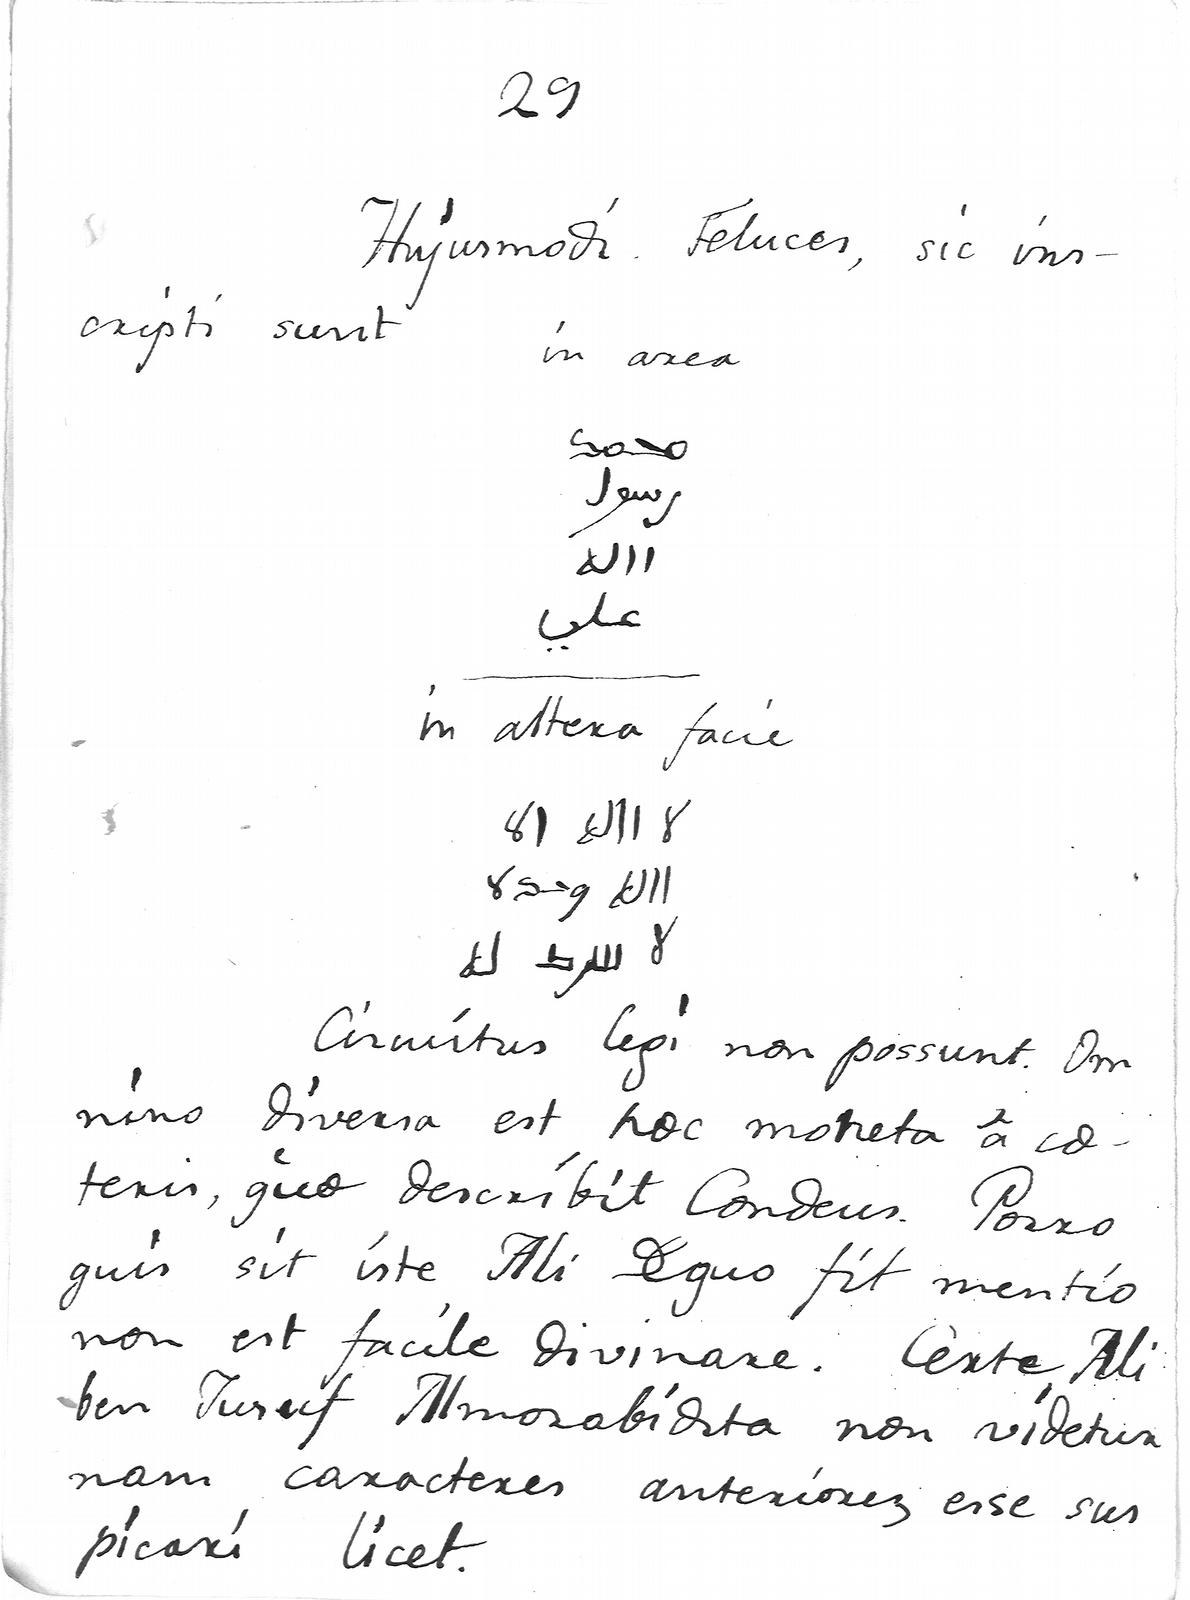 29
Hujusmodi Feluces, sic ins-
cripti sunt
in area
محمد
رسول
االله
علي
in altera facie
لا االه الا
االله وحده
لا شريك له
Circuitus legi non possunt. Om
nino diversa est hæc moneta â cæ-
teris, quæ describit Condeus. Porro
quis sit iste Ali De quo fit mentio
non est facile divinare. Certe Ali
ben Jusuf Almorabidita non videtur
nam caracteres anteriores esse sus
picari licet.